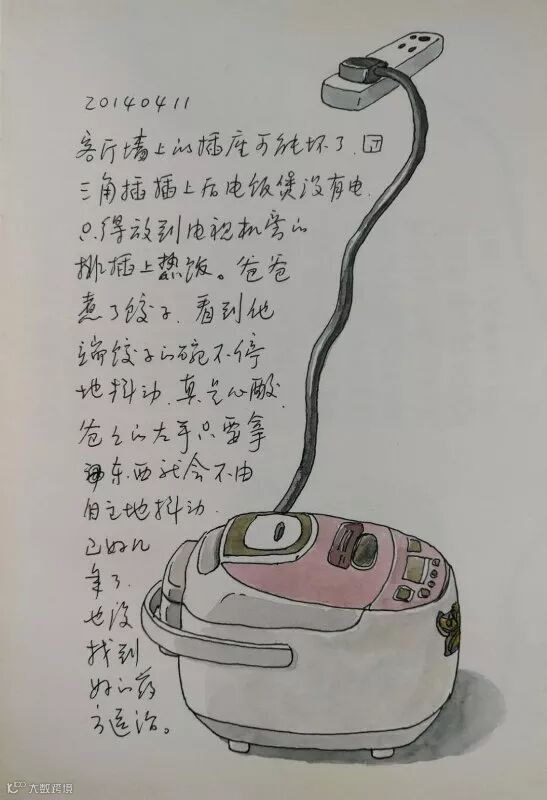 20140411
客厅墙上的插座可能坏了.因
三角插插上后电饭煲没有电.
只得放到电视机旁的
排插上热饭。爸爸
煮了饺子.看到他
端饺子的碗不停
地抖动.真是心酸.
爸爸的左手只要拿
东西就会不由
自主地抖动.
已好几
年了.
也没
找到
好的药
方医治。
大数跨境